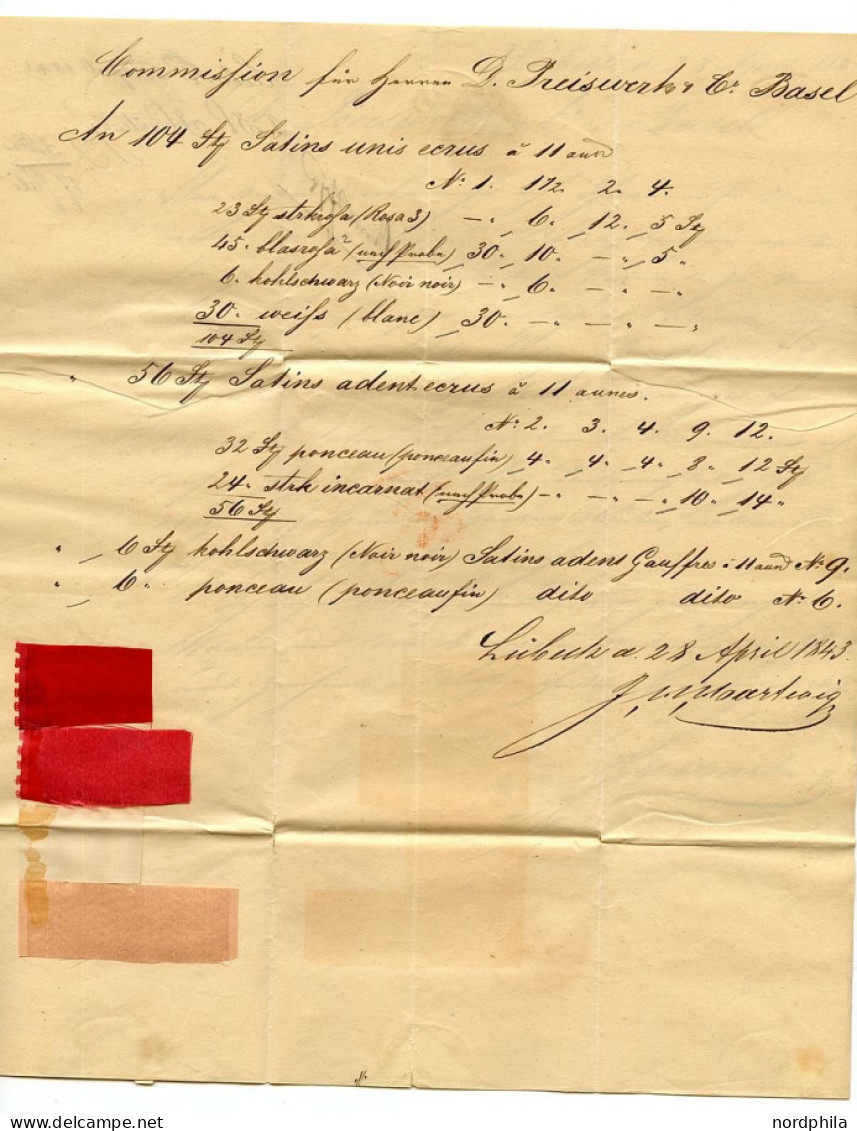 Commission für Herren D. Preiswerk & Cº Basel
An 104 Stz Satins unis ecrus à 11 aund
Nº 1. 1½. 2. 4.
23 Stz strkrosa (Rosa 3) — „ 6. 12. 5 Stz
45 „ blasrosa (nach Probe) 30. 10. — „ 5 „
6. kohlschwarz (Noir noir) — „ 6. — „ — „
30 „ weiss (blanc) 30. — „ — „ — „
104 Stz
„ 56 Stz Satins adent ecrus à 11 aunes.
Nº 2. 3. 4. 9. 12.
32 Stz ponceau (ponceau fin) 4 „ 4 „ 4 „ 8 „ 12 Stz
24 „ strk incarnat (nach Probe) — „ — „ — „ 10 „ 14 „
56 Stz
„ 6 Stz kohlschwarz (Noir noir) Satins adent Gauffres à 11 aund Nº 9.
„ 6 „ ponceau (ponceau fin) dito dito Nº 6.
Lübeck a. 28 April 1843.
Hartwig
nordphila